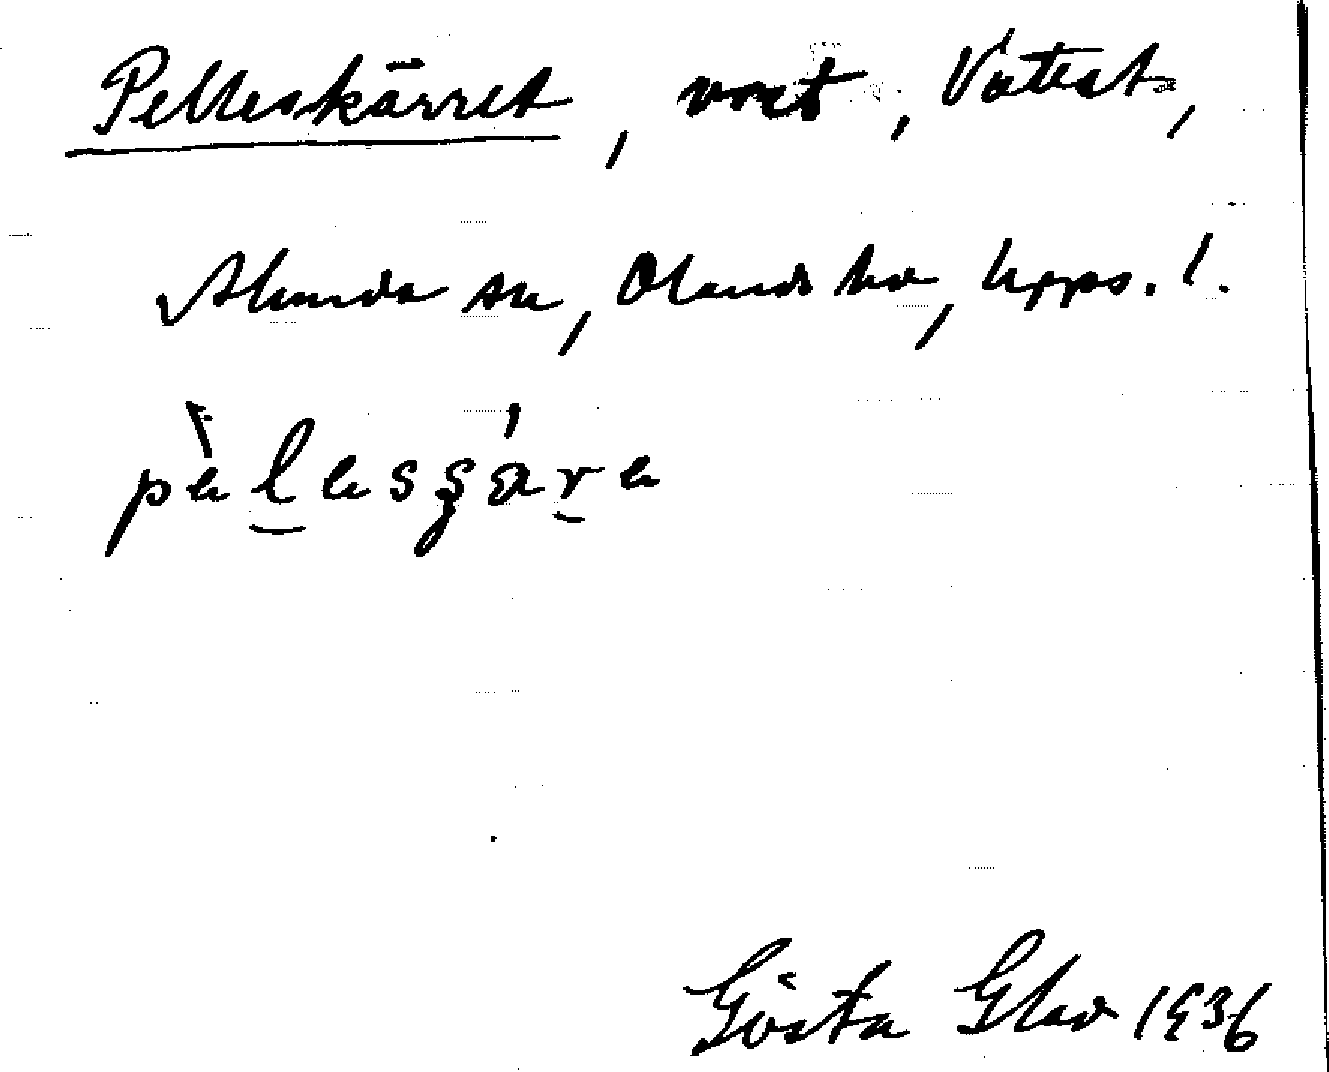 Pelleskärret, vret, Vättest,
Alunda sn, Olands hd, Upps. l.
pèlesgáre
Gösta Glad 1936